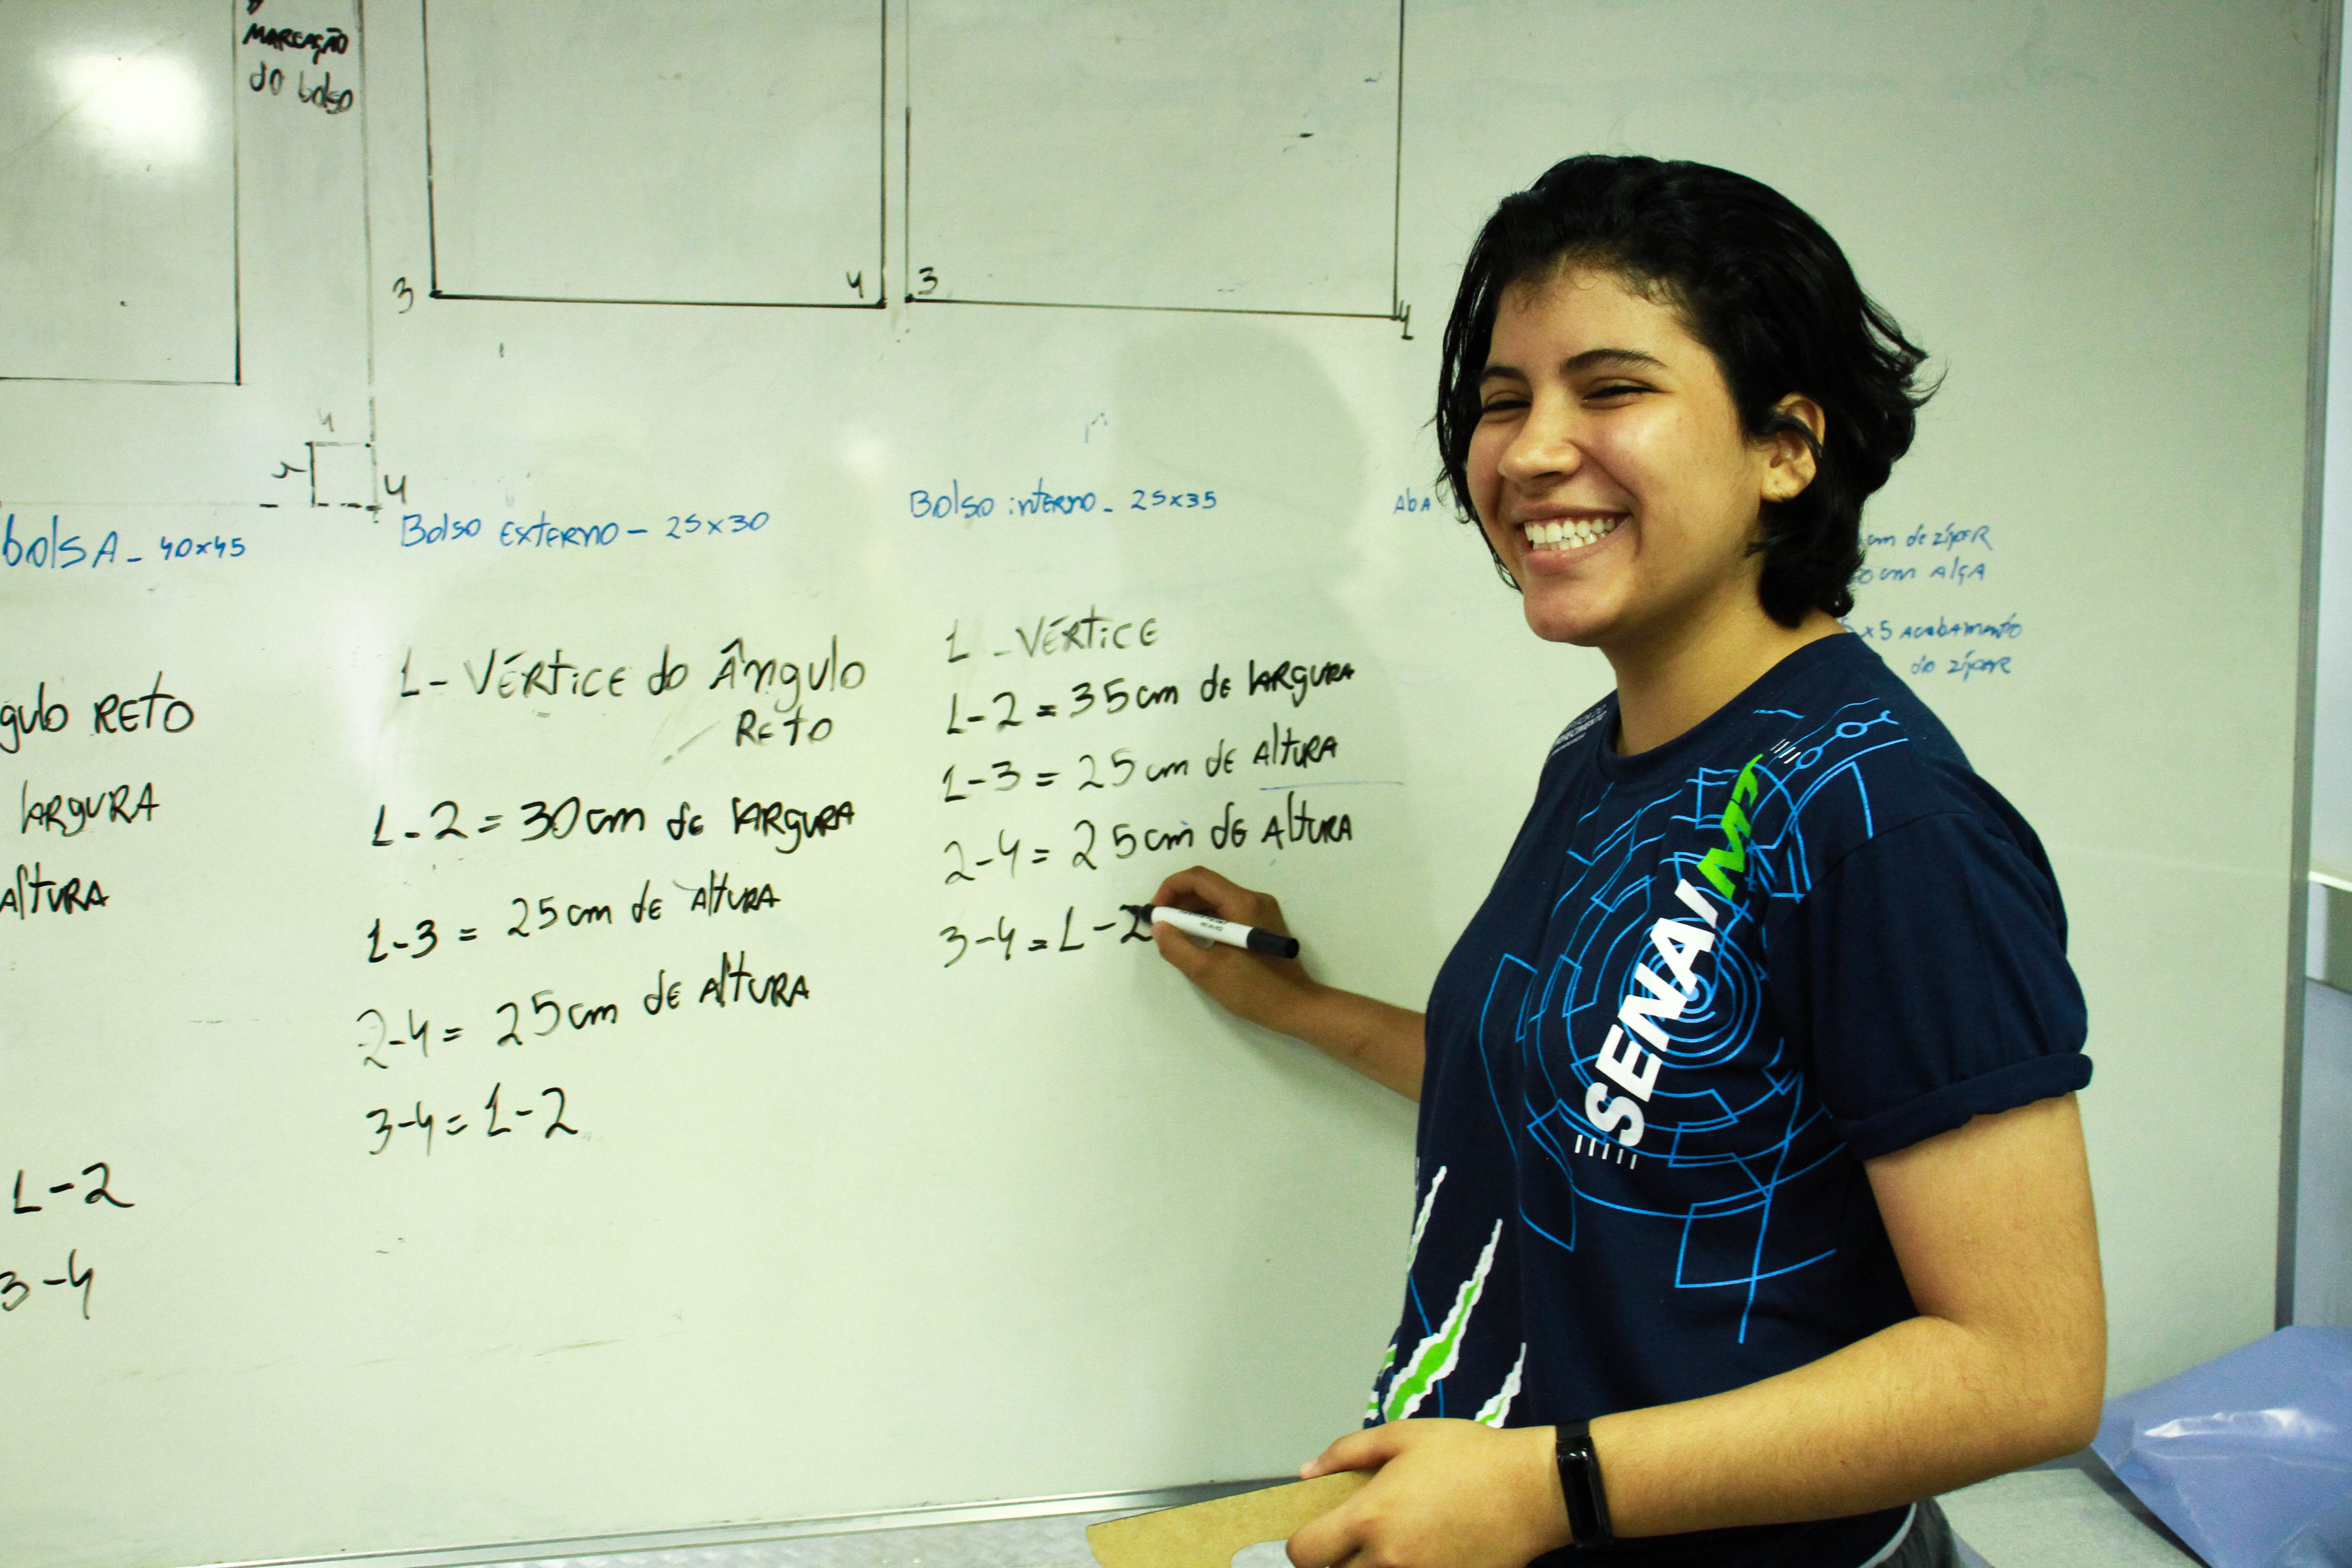 MARCAÇÃO
do bolso
3
4
3
4
4
4
bolsA - 40x45
Bolso Externo - 25x30
Bolso interno - 25x35
AbA
cm de zíper
cm Alça
x5 Acabamento
do zíper
gulo Reto
largura
Altura
1-2
3-4
1- Vértice do Ângulo
Reto
1-2 = 30cm de largura
1-3 = 25cm de Altura
2-4 = 25cm de Altura
3-4 = 1-2
1 - Vértice
1-2 = 35cm de largura
1-3 = 25cm de Altura
2-4 = 25cm de Altura
3-4 = 1-2
SENAI MT